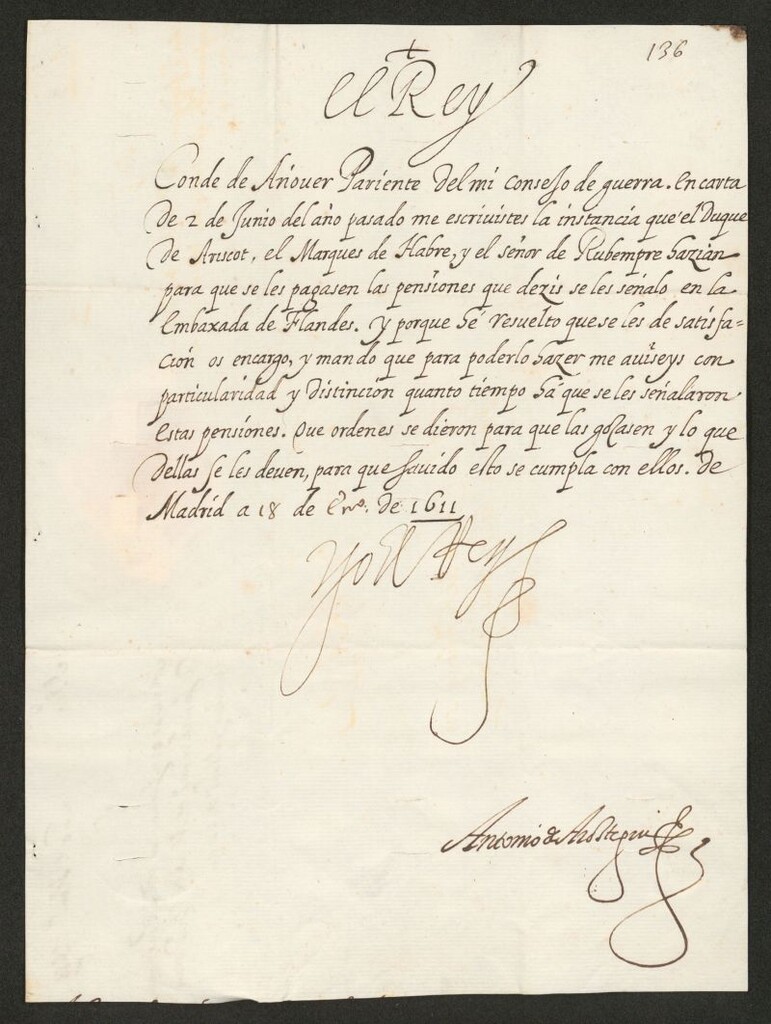 136
+
El Rey
Conde de Añover Pariente Del mi Consejo de guerra. En carta
De 2 de Junio del año pasado me escriuistes la instancia que el Duque
De Ariscot, el Marques de Habre, y el señor de Rubempre hazian
para que se les pagasen las pensiones que dezis se les señalo en la
Embaxada de Flandes. Y porque hé resuelto que se les de satisfa=
ción os encargo, y mando que para poderlo hazer me auiseys con
particularidad y Distincion quanto tiempo há que se les señalaron
estas pensiones. Que ordenes se dieron para que las gozasen y lo que
Dellas se les deuen, para que sauido esto se cumpla con ellos. de
Madrid a 18 de Enº. De 1611
Yo El Rey
Antonio de Arostegui